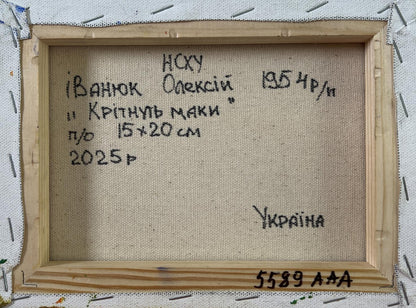 НСХУ
іВАНЮК Олексій 1954 р/н
„ Крітнуть маки "
п/о 15х20 см
2025 р
Україна
5589 ААА